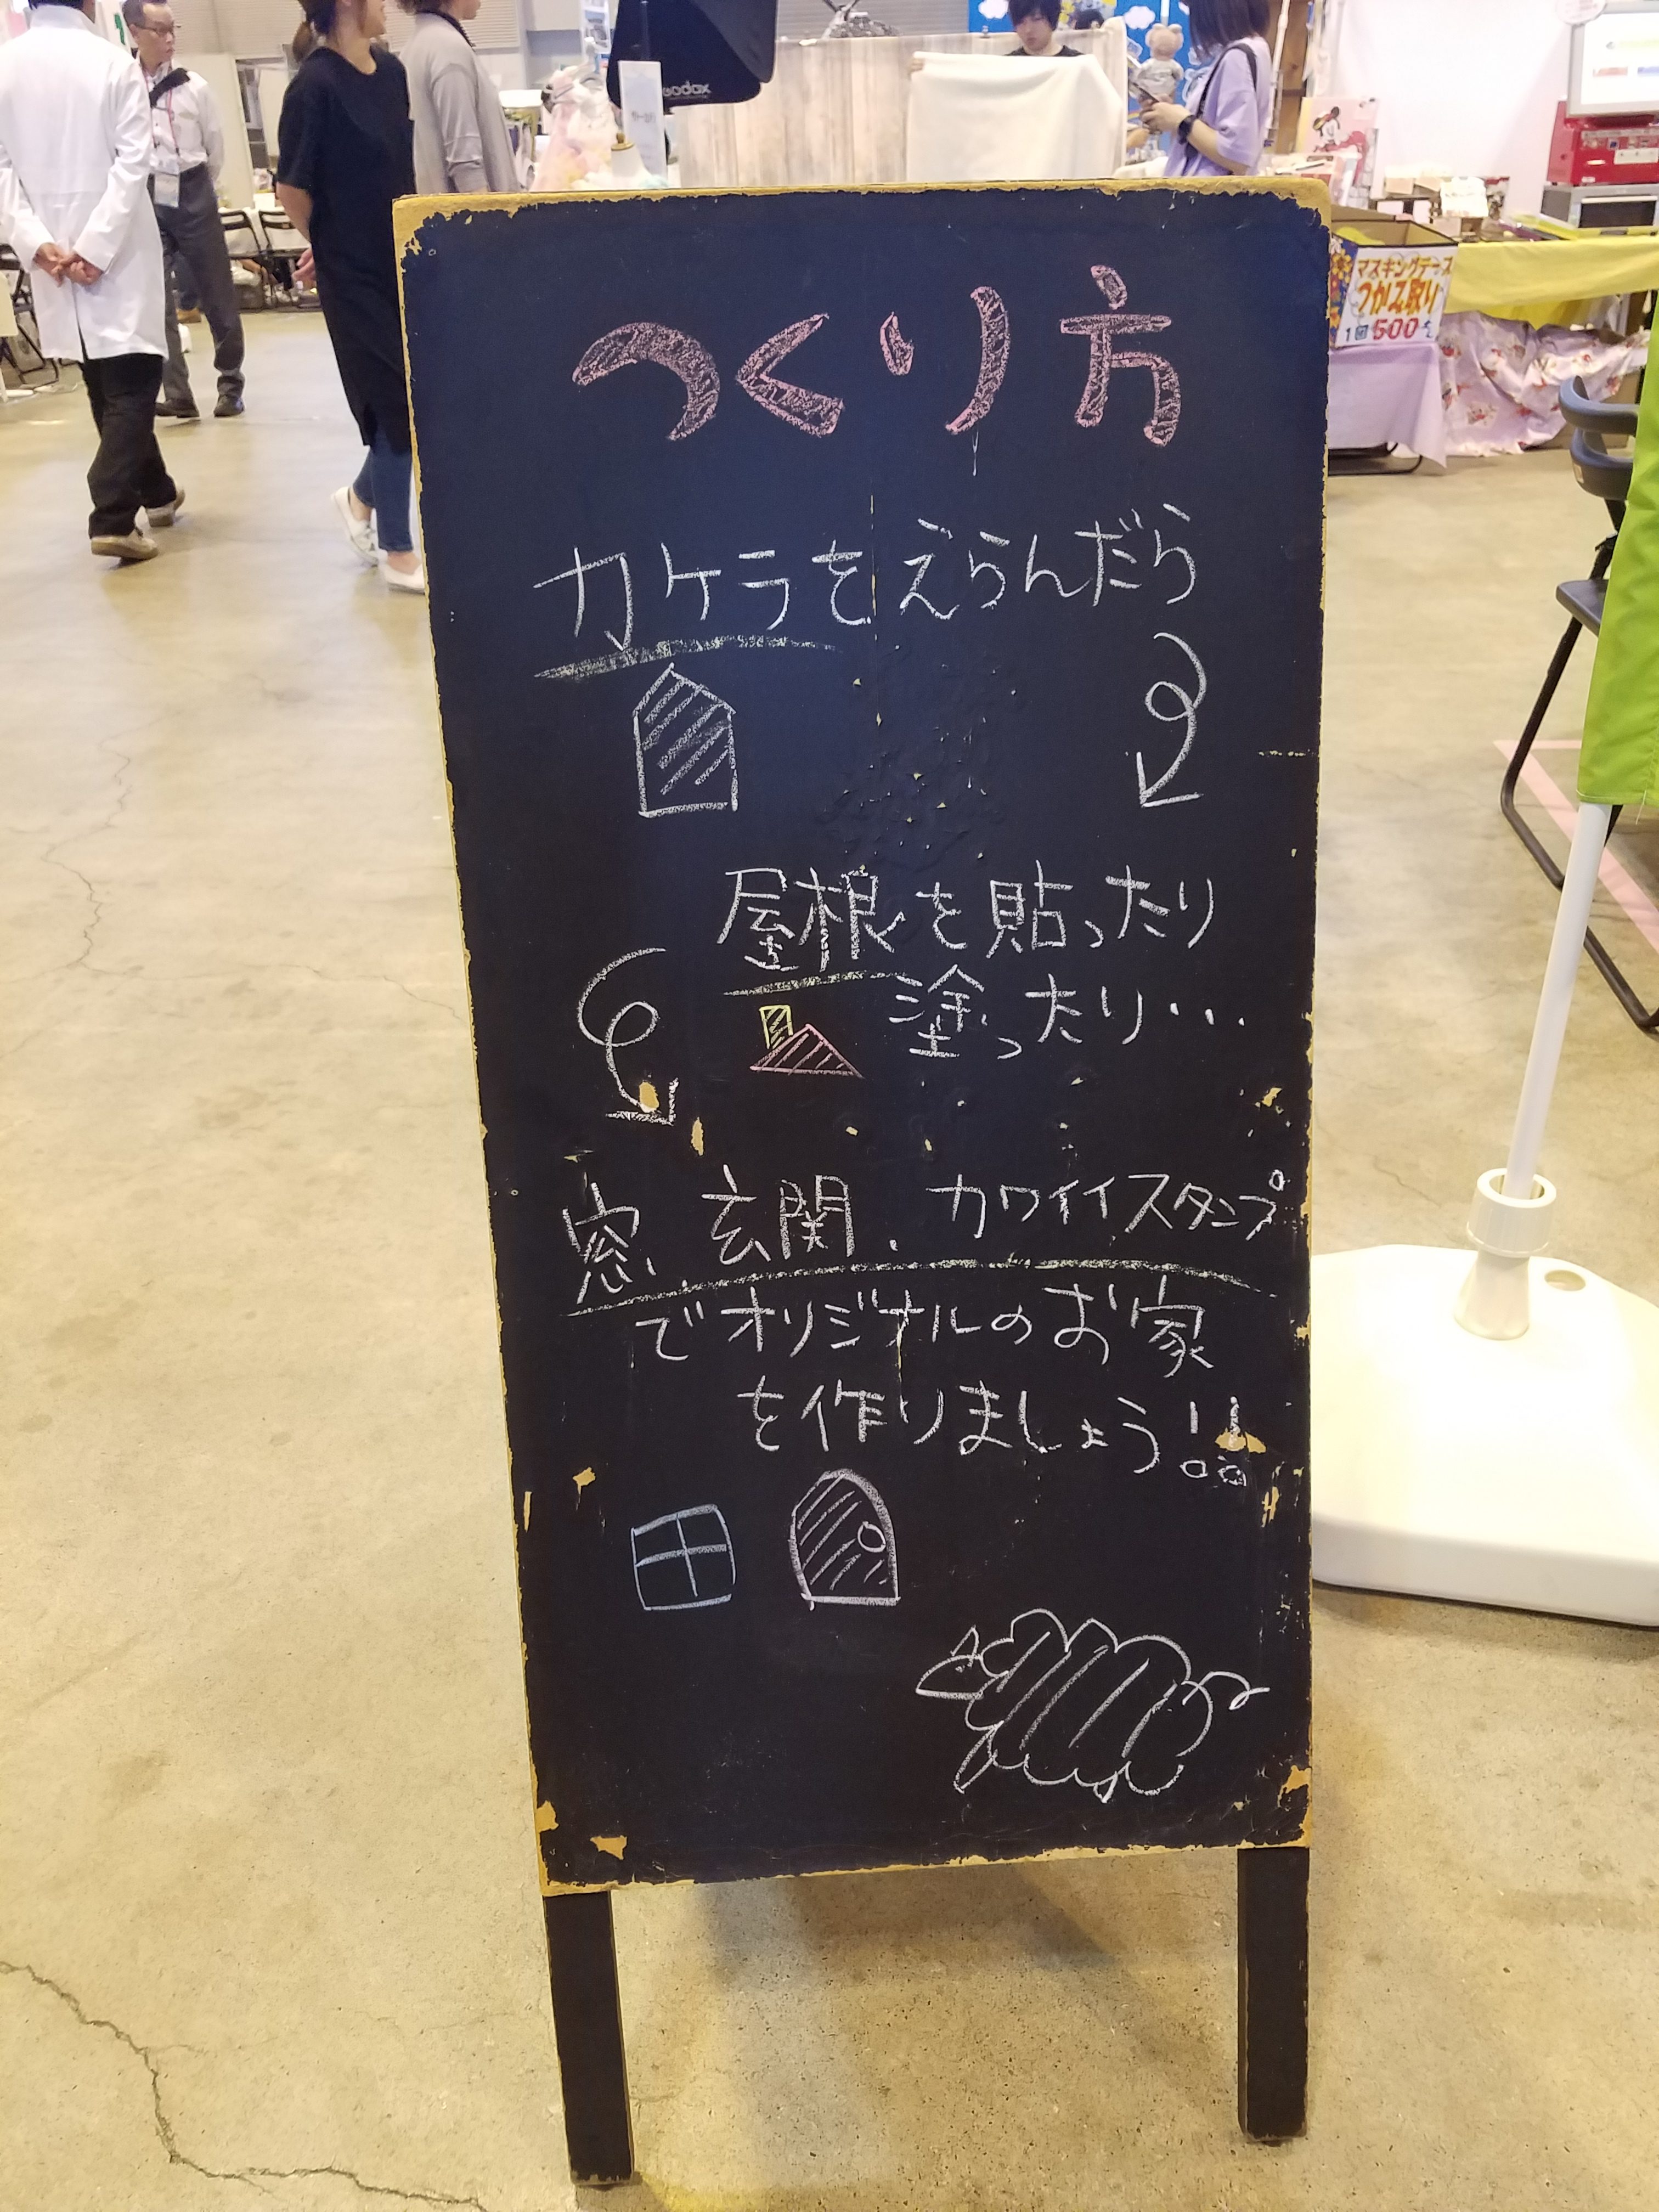 つくり方
カケラをえらんだら
屋根を貼ったり
塗ったり・・・
窓、玄関、カワイイスタンプ
でオリジナルのお家
を作りましょう!!
マスキングテープ
つかみ取り
1回500円